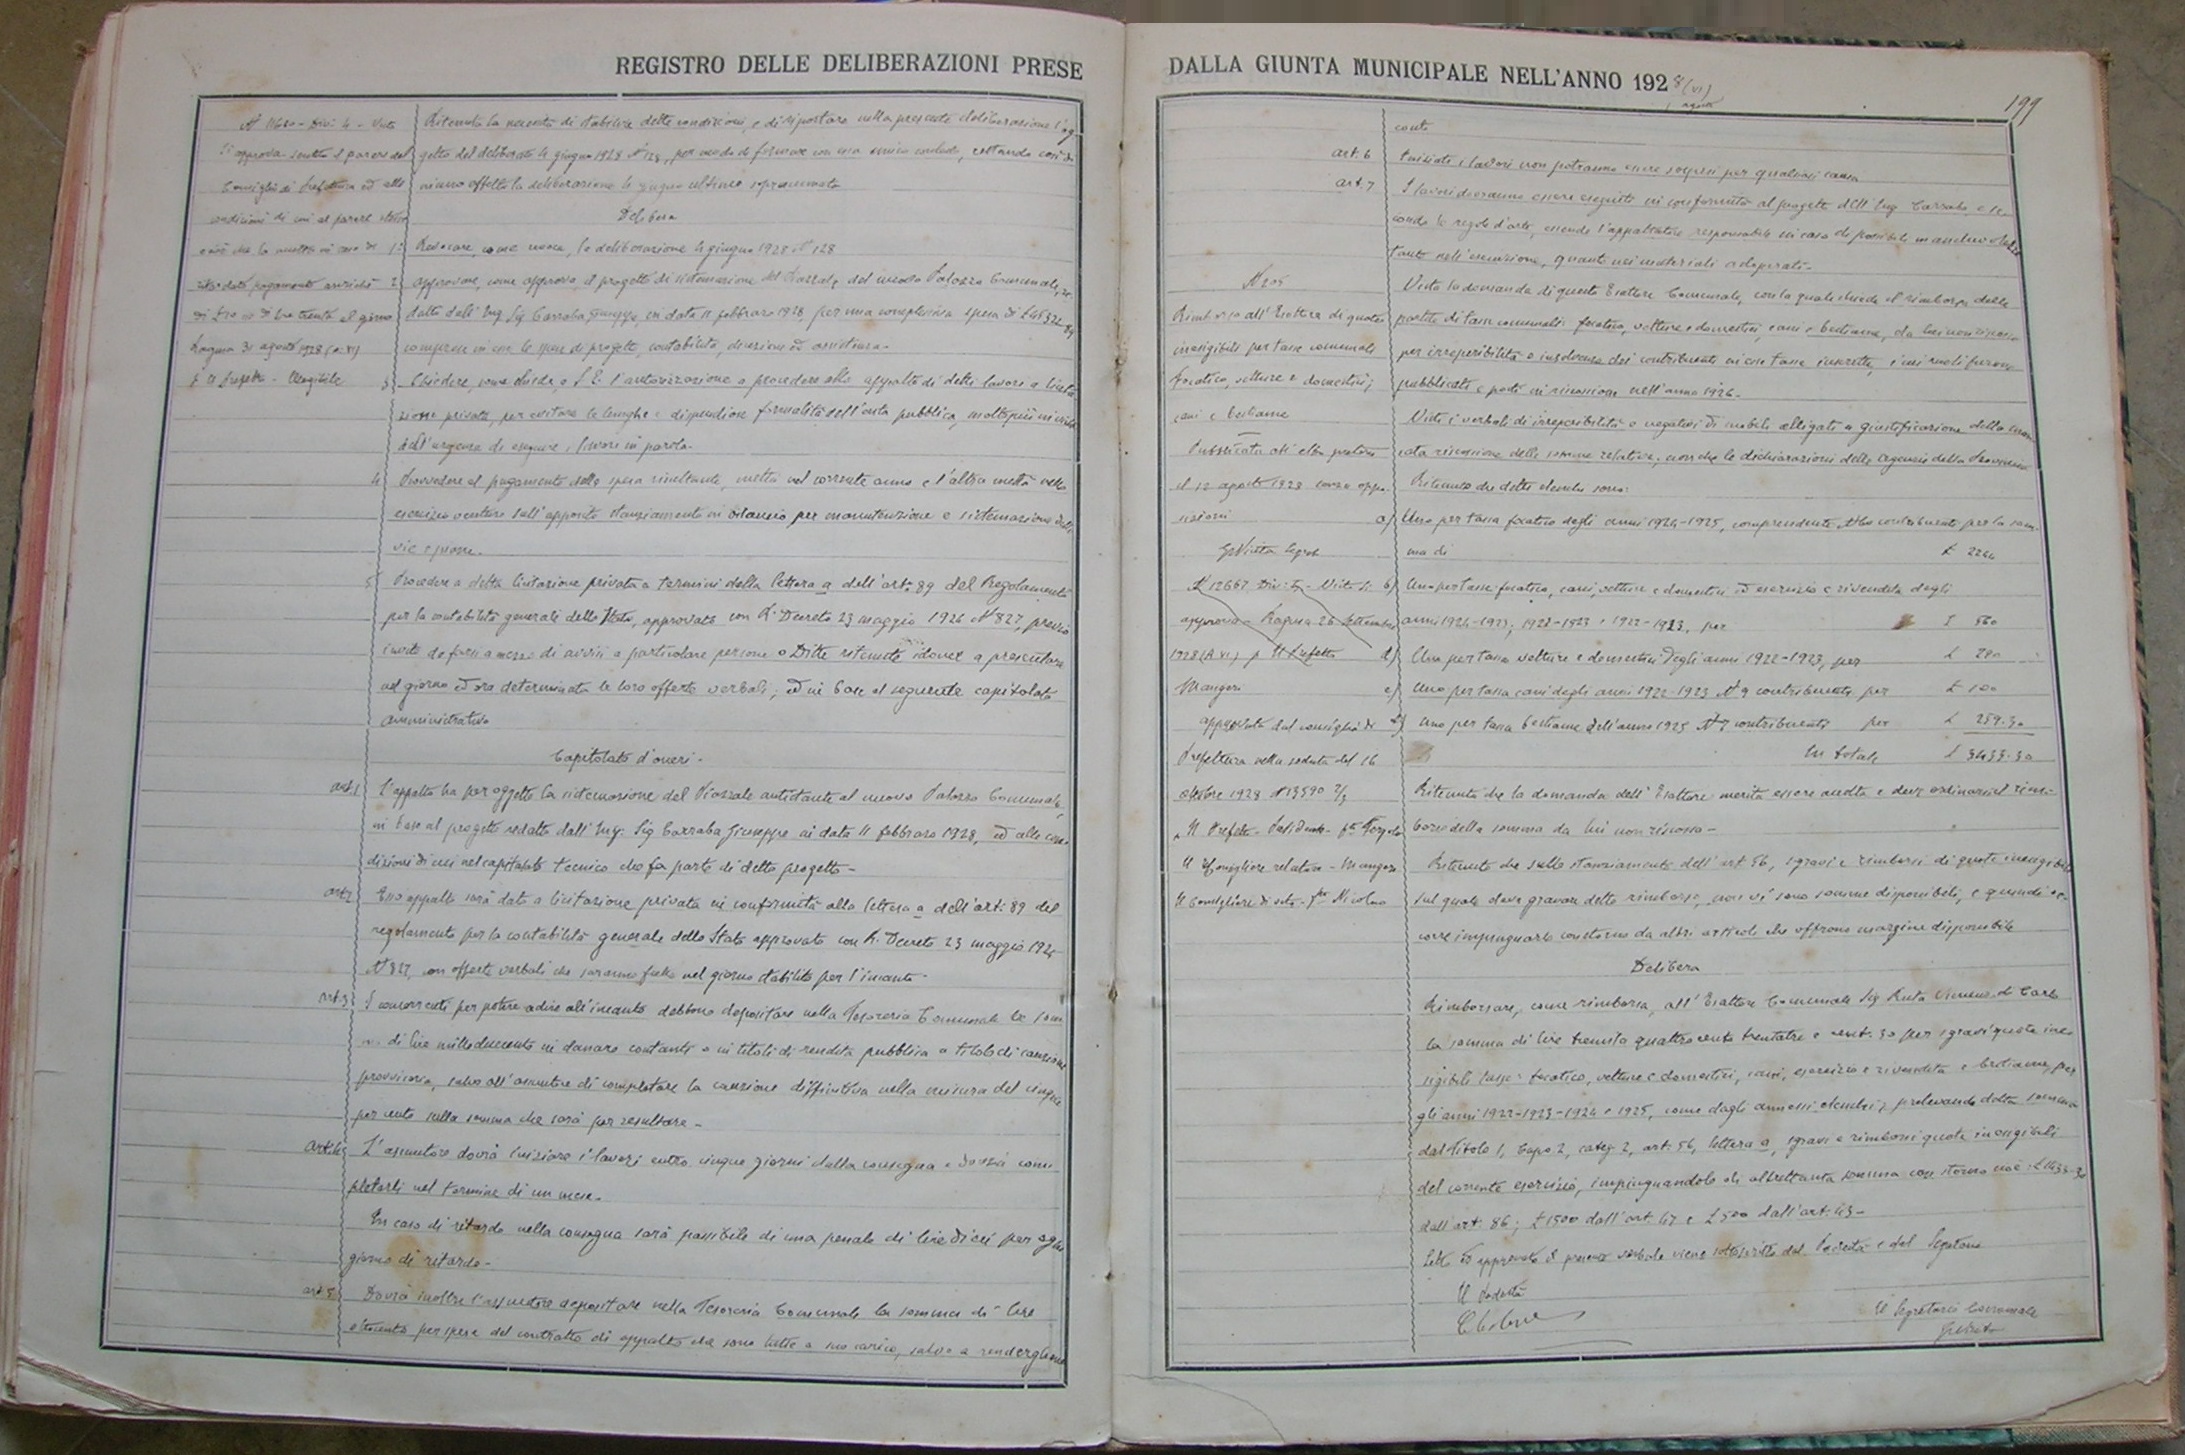 REGISTRO DELLE DELIBERAZIONI PRESE
Si approva sentito il parere del
Consiglio di Prefettura ed alle
condizioni di cui al parere stesso
Ragusa 31 agosto 1928 (a. VI)
p. Il Prefetto - Illegibile
Ritenuta la necessità di stabilire dette condizioni, e di riportare nella presente deliberazione l'og
getto del deliberato 4 giugno 1928 N° 128, per modo di formare con essa unico
Delibera
1° Revocare, come revoca, la deliberazione 4 giugno 1928 N° 128
2° approvare, come approva, il progetto di sistemazione del Piazzale del nuovo Palazzo Comunale, re
datto dall'Ing. Sig. Carraba Giuseppe, in data 11 febbraro 1928, per una complessiva spesa di
comprese in esse le spese di progetto, contabilità, direzione ed assistenza.
3 Chiedere, come chiede, a S. E. l'autorizzazione a procedere allo appalto di detti lavori a licita
zione privata, per evitare le lunghe e dispendiose formalità dell'asta pubblica, molto più in vista
dell'urgenza di eseguire i lavori in parola.
4 Provvedere al pagamento della spesa risultante, metà nel corrente anno e l'altra metà nello
esercizio venturo sull'apposito stanziamento in bilancio per manutenzione e sistemazione delle
vie e piazze.
5 Procedere a detta licitazione privata a termini della lettera a dell'art. 89 del Regolamento
per la contabilità generale dello Stato, approvato con R. Decreto 23 maggio 1924 N° 827, previo
invito da farsi a mezzo di avvisi a particolare persone o Ditte ritenute idonee a presentare
nel giorno ed ora determinata le loro offerte verbali; ed in base al seguente capitolato
amministrativo
Capitolato d'oneri.
art. 1 L'appalto ha per oggetto la sistemazione del Piazzale antistante al nuovo Palazzo Comunale,
in base al progetto redatto dall'Ing. Sig. Carraba Giuseppe in data 11 febbraro 1928, ed alle con
dizioni di cui nel capitolato tecnico che fa parte di detto progetto.
art. 2 Esso appalto sarà dato a licitazione privata in conformità alla lettera a dell'art. 89 del
regolamento per la contabilità generale dello Stato approvato con R. Decreto 23 maggio 1924
N° 827 con offerte verbali che saranno fatte nel giorno stabilito per l'incanto.
art. 3 I concorrenti per potere adire all'incanto debbono depositare nella Tesoreria Comunale la som
ma di lire milleduecento in danaro contanti o in titoli di rendita pubblica a titolo di cauzione
provvisoria, salvo all'assuntore di completare la cauzione diffinitiva nella misura del cinque
per cento sulla somma che sarà per resultare.
art. 4 L'assuntore dovrà iniziare i lavori entro cinque giorni dalla consegna e dovrà com
pletarli nel termine di un mese.
In caso di ritardo nella consegna sarà passibile di una penale di lire dieci per ogni
giorno di ritardo.
art. 5 Dovrà inoltre l'assuntore depositare nella Tesoreria Comunale la somma di lire
per spese del contratto di appalto che sono tutte a suo carico, salvo a renderglisene
DALLA GIUNTA MUNICIPALE NELL'ANNO 1928 (VI)
agosto
199
conto
art. 6 Iniziati i lavori non potranno essere sospesi per qualsiasi causa
art. 7 I lavori dovranno essere eseguiti in conformità al progetto dell'Ing. Carraba, e se
condo le regole d'arte, essendo l'appaltatore responsabile in caso di possibile
tanto nell'esecuzione, quanto nei materiali adoperati.
N 205
Rimborso all'Esattore di quote
inesigibili per tasse comunali
focatico, vetture e domestici;
cani e bestiame
Pubblicata all'albo pretorio
il 12 agosto 1928 senza oppo
sizioni
N 12667 Div.
approva - Ragusa 26 settembre
1928 (A. VI) p. Il Prefetto
Mangeri
approvata dal consiglio di
Prefettura nella seduta del 16
ottobre 1928 N° 13590
Il Prefetto - Presidente -
Il Consigliere relatore - Mangeri
Il Consigliere di
Vista la domanda di questo Esattore Comunale, con la quale chiede il rimborso delle
partite di tasse comunali: focatico, vetture e domestici, cani e bestiame, da lui non riscosse
per irreperibilità o insolvenza dei contribuenti in esse tasse inscritte, i cui ruoli furono
pubblicati e posti in riscossione nell'anno 1926.
Visti i verbali di irreperibilità o negativi di mobili allegati a giustificazione della man
cata riscossione delle somme relative, nonchè le dichiarazioni delle Agenzie della Provincia
Ritenuto che detti elenchi sono:
a) Uno per tassa focatico degli anni 1924-1925, comprendente contribuenti per la som
ma di £ 2244
b) Uno per tasse focatico, cani, vetture e domestici ed esercizio e rivendita degli
per £ 560
d) Uno per tassa vetture e domestici degli anni 1922-1923, per £ 280
e) Uno per tassa cani degli anni 1922-1923 N° 9 contribuenti per £ 100
Uno per tassa bestiame dell'anno 1925 N° 7 contribuenti per £ 259.30
In totale £ 3433.30
Ritenuto che la domanda dell'Esattore merita essere accolta e deve ordinarsi il rim-
borso della somma da lui non riscossa.
Ritenuto che sullo stanziamento dell'art. 56, sgravi e rimborsi di quote inesigibili
sul quale deve gravare detto rimborso, non vi sono somme disponibili, e quindi oc
corre impinguarlo con storno da altri articoli che offrono margine disponibile
Delibera
Rimborsare, come rimborsa, all'Esattore Comunale Sig. di Carlo
la somma di lire tremila quattrocento trentatre e cent. 30 per sgravi quote ine
sigibili tasse: focatico, vetture e domestici, cani, esercizio e rivendita e bestiame, per
gli anni 1922-1923-1924 e 1925, come dagli annessi elenchi, prelevando detta somma
dal Titolo 1, Capo 2, categ. 2, art. 56, lettera a, sgravi e rimborsi quote inesigibili
del corrente esercizio, impinguandolo di altrettanta somma con storno cioè: £ 1433.30
dall'art. 86; £ 1500 dall'art. 47 e £ 500 dall'art. 43.
Letto ed approvato il presente verbale viene sottoscritto dal Podestà e dal Segretario
Il Podestà
Il Segretario Comunale